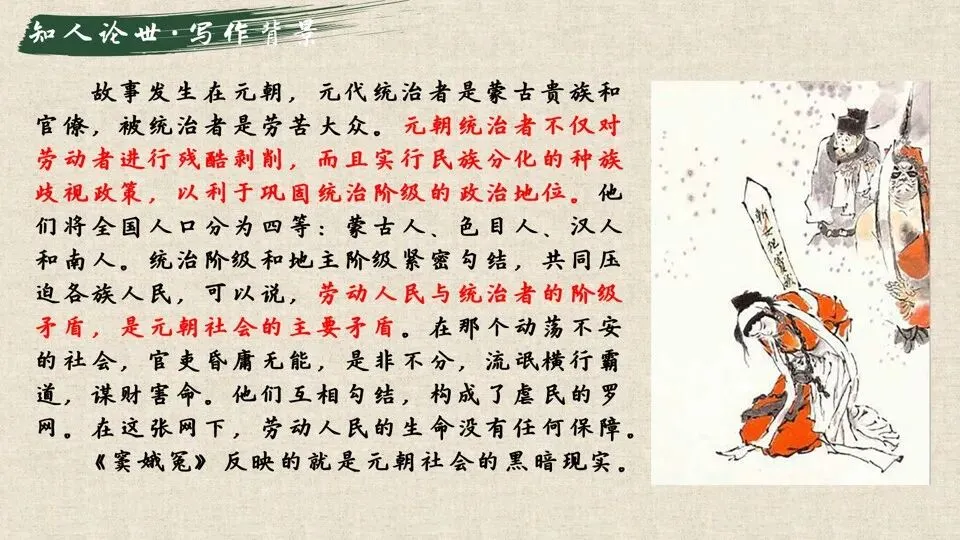 知人论世·写作背景
故事发生在元朝，元代统治者是蒙古贵族和
官僚，被统治者是劳苦大众。元朝统治者不仅对
劳动者进行残酷剥削，而且实行民族分化的种族
歧视政策，以利于巩固统治阶级的政治地位。他
们将全国人口分为四等：蒙古人、色目人、汉人
和南人。统治阶级和地主阶级紧密勾结，共同压
迫各族人民，可以说，劳动人民与统治者的阶级
矛盾，是元朝社会的主要矛盾。在那个动荡不安
的社会，官吏昏庸无能，是非不分，流氓横行霸
道，谋财害命。他们互相勾结，构成了虐民的罗
网。在这张网下，劳动人民的生命没有任何保障。
《窦娥冤》反映的就是元朝社会的黑暗现实。